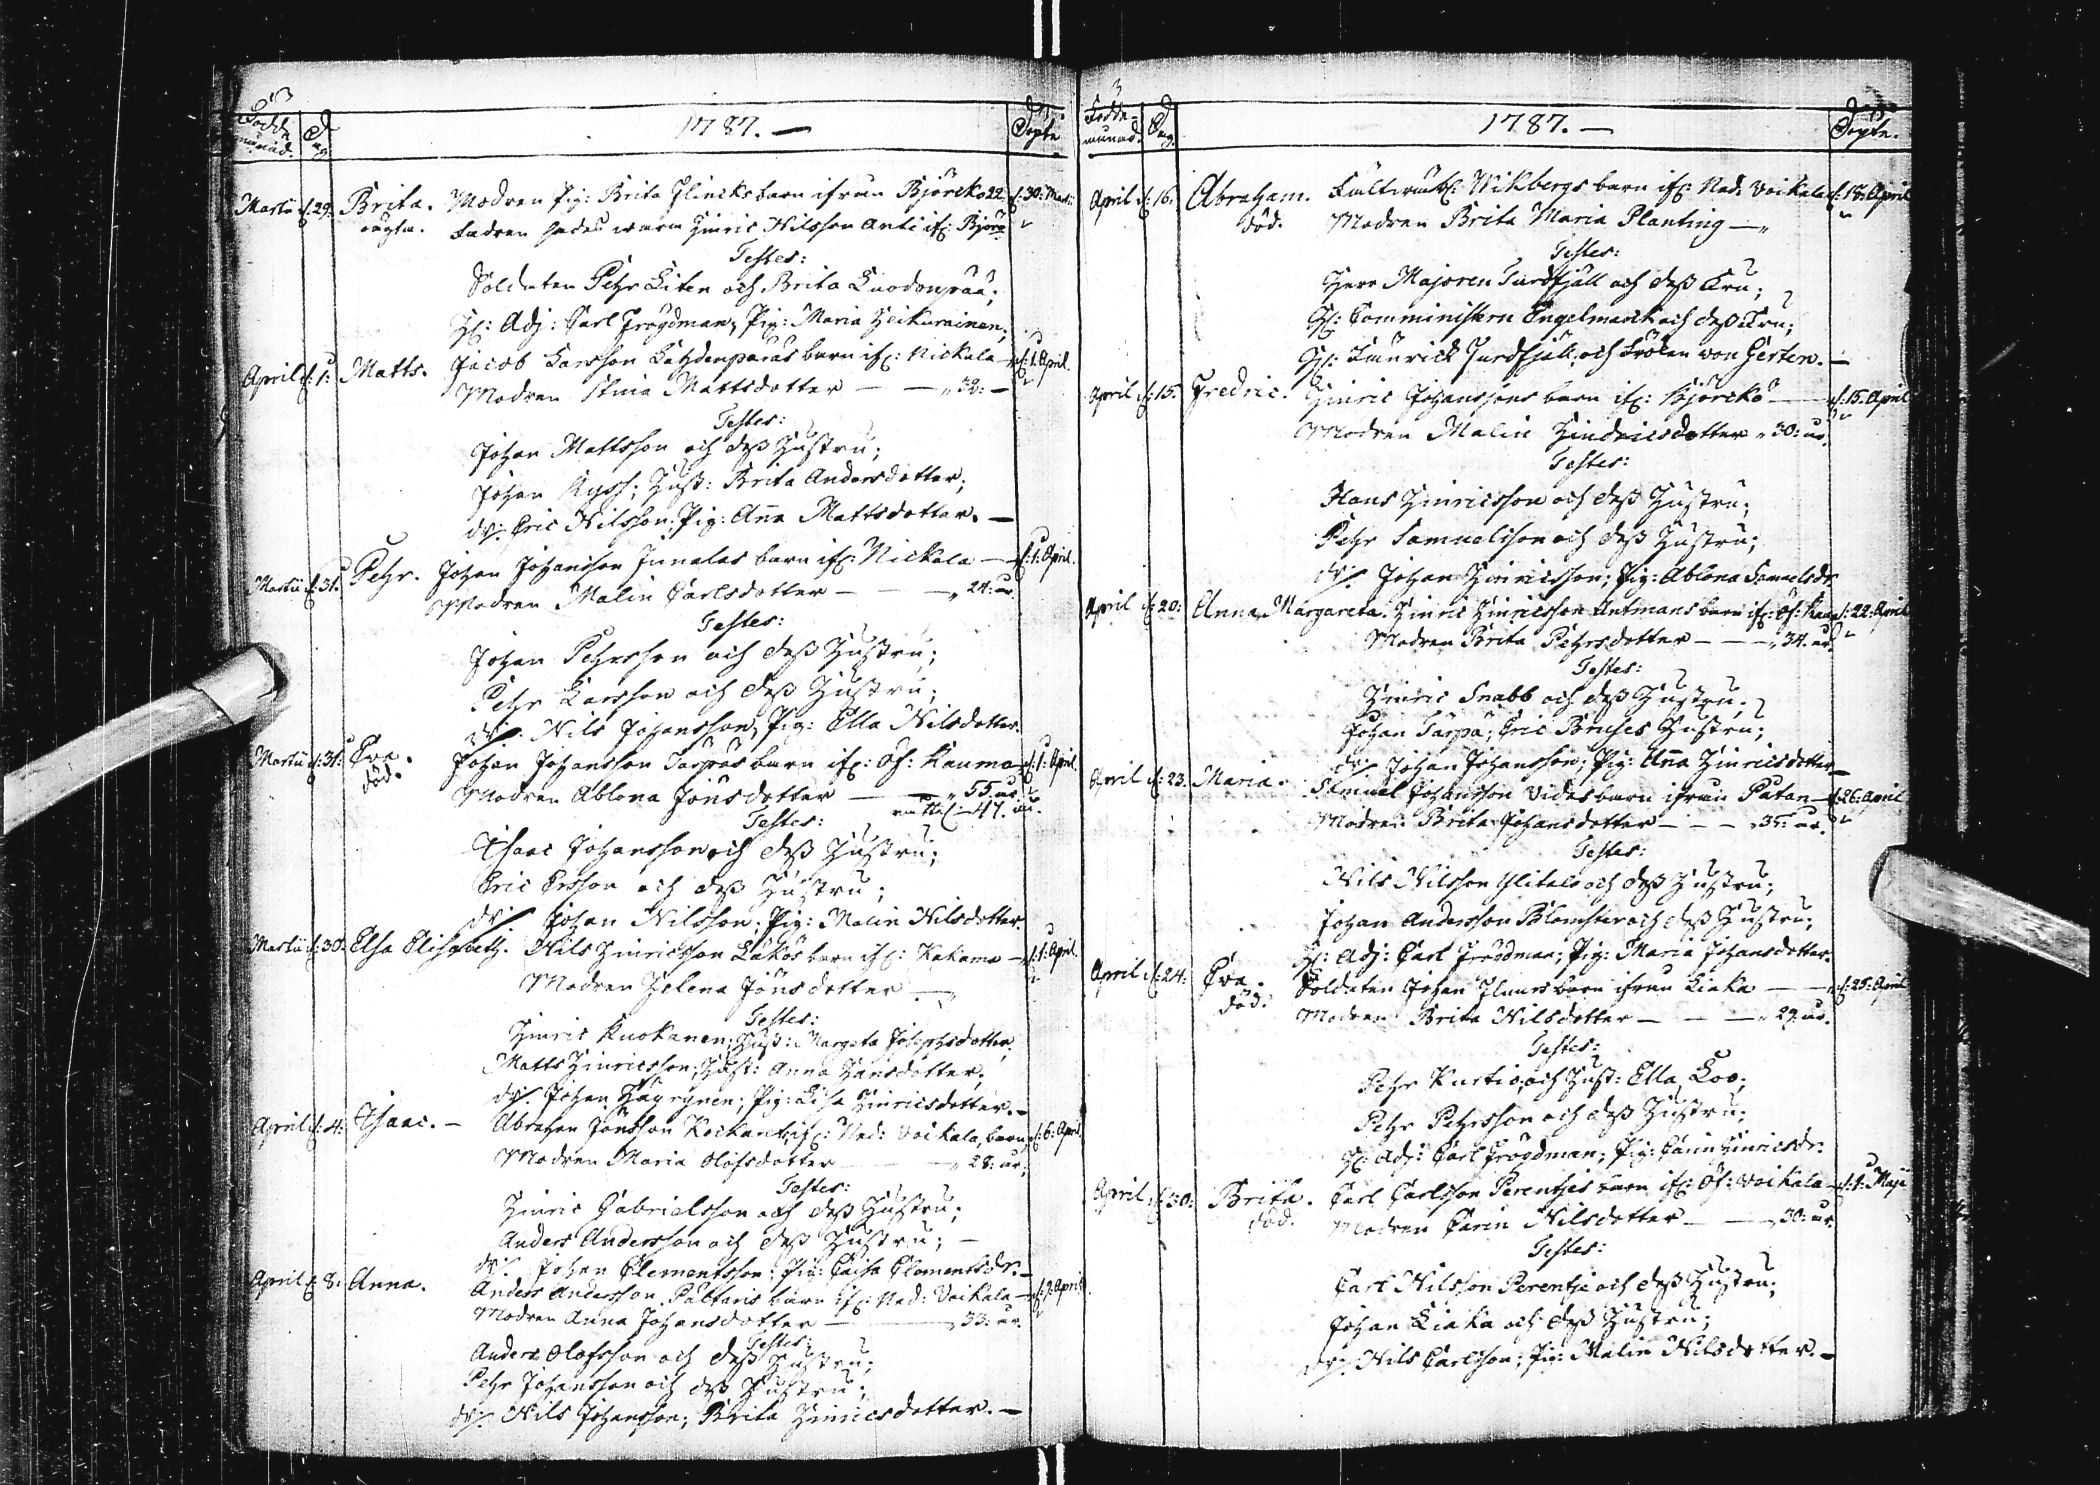 Födde månad. Dag. 1787. — Döpte
Martii d: 29. Brita. Modren Pig: Brita Flincks barn ifrån Björckö 22. d: 30: Martii
oägta. Fadren sades wara Hinric Nilsson Anti if: Björckö
Testes:
Soldaten Pehr Liten och Brita
H: Adj: Carl Frögdman, Pig: Maria Heikurainen;
April d: 1: Matts. Jacob Larsson barn if: Nickala — d: 1. April.
Modren Stina Mattsdotter — — 32: —
Testes:
Johan Mattsson och dess Hustru;
Johan Ryss; Hust: Brita Andersdotter;
dr: Eric Nilsson, Pig: Anna Mattsdotter. —
Martii d: 31. Pehr. Johan Johansson Junalas barn if: Nickala — d: 1: April.
Modren Malin Carlsdotter — — 24: år
Testes:
Johan Pehrsson och dess Hustru;
Pehr Larsson och dess Hustru;
dr: Nils Johansson, Pig: Ella Nilsdotter.
Martii d: 31: Eva. Johan Johansson barn if: Öf: Kauma d: 1: April.
död. Modren Ablona Jönsdotter — 55. år
47. år.
Testes:
Isaac Johansson och dess Hustru;
Eric Ersson och dess Hustru;
dr: Johan Nilsson. Pig: Malin Nilsdotter.
Martii d: 30. Elsa Elisabeth. Nils Hinricsson Lakos barn if: Kakama — d: 1: April.
Modren Helena Jönsdotter —
Testes:
Hinric Kuokanen; Hust: Margeta Josephsdotter,
Matts Hinricsson; Hust: Anna Hansdotter,
dr: Johan Häyrynen; Pig: Lisa Hinricsdotter. —
April d: 4: Isaac. — Abraham Jönsson if: Ned: Voikala, barn d: 6: April.
Modren Maria Olofsdotter — 28: år;
Testes:
Hinric Gabrielsson och dess Hustru;
Anders Andersson och dess Hustru; —
dr: Johan Clementsson; Pig: Caisa Clementsdr. —
April d: 8: Anna. Anders Andersson barn if: Ned: Voikala — d: 9: April
Modren Anna Johansdotter — 33: år.
Testes:
Anders Olofsson och dess Hustru;
Pehr Johansson och dess Hustru;
dr: Nils Johansson; Brita Hinricsdotter. —
Födde månad. Dag. 1787. — Döpte.
April d: 16. Abraham. Wikbergs barn if: Ned: Voikala d: 18: April
död. Modren Brita Maria Planting —
Testes:
Herr Majoren Turdfjäll och dess Fru;
H: Comministern Engelmarck och dess Fru;
H: Turdfjäll, och Fröken von Gerten. —
April d: 15. Fredric. Hinric Johanssons barn if: Björckö — d: 15. April
Modren Malin Hindricsdotter 30: år.
Testes:
Hans Hinricsson och dess Hustru;
Pehr Samuelsson och dess Hustru;
dr: Johan Hinricsson; Pig: Ablona Samuelsdr.
April d: 20: Anna Margareta. Hinric Hinricsson Antmans barn if: Öf: Kauma d: 22: April
Modren Brita Pehrsdotter — — 34. år.
Testes:
Hinric Snabb och dess Hustru,
Johan Tarpa, Eric Hustru;
dr: Johan Johansson; Pig: Anna Hinricsdotter —
April d: 23. Maria. Samuel Johansson Vidas barn ifrån Patan d: 26: April
Modren Brita Johansdotter — — 35: år.
Testes:
Nils Nilsson Ylitalo och dess Hustru;
Johan Andersson Blomster och dess Hustru;
H: Adj: Carl Frögdman; Pig: Maria Johansdotter.
April d: 24: Eva. Soldaten Johan barn ifrån Liaka — — d: 25: April
död. Modren Brita Nilsdotter — — — 29: år.
Testes:
Pehr Kurtio, och Hust: Ella Loo;
Pehr Pehrsson och dess Hustru;
H: Adj: Carl Frögdman; Pig: Carin Hinricsdr.
April d: 30: Brita. Carl Carlsson Perentjes barn if: Öf: Voikala — d: 1: Maji
död. Modren Carin Nilsdotter — — 30: år
Testes:
Carl Nilsson Perentje och dess Hustru;
Johan Liaka och dess Hustru;
dr: Nils Carlsson; Pig: Malin Nilsdotter. —